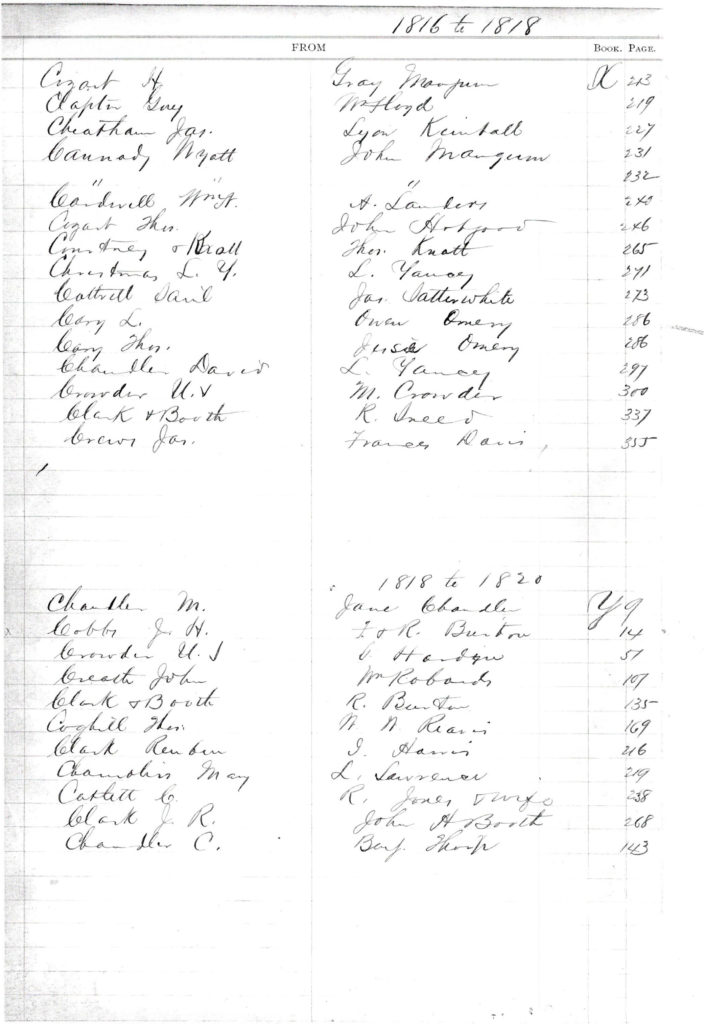 1816 to 1818
FROM BOOK. PAGE.
Cozart H. Gray Mangum X 213
Clapton Guy Wm Floyd 219
Cheatham Jas. Lyon Kimball 227
Cannady Wyatt John Mangum 231
" " " 232
Cardwell Wm A. Landers 240
Cozart Thos. John Hobgood 246
Courtney & Knott Thos. Knott 265
Christmas L. Y. L. Yancey 271
Cottrell Saml Jas. Satterwhite 273
Cary L. Owen Omery 286
Cary Thos. Jesse Omery 286
Chandler David L. Yancey 297
Crowder U. M. Crowder 300
Clark & Booth R. Sneed 337
Crews Jas. Frances Davis 355
1818 to 1820
Chandler M. Jane Chandler Y 9
Cobbs J. H. F. & R. Burton 14
Crowder U. J 51
Creath John Wm Robards 107
Clark & Booth R. Burton 135
Coghill Thos. W. N. Reavis 169
Clark Reuben I. Harris 216
May L. Lawrence 219
Catlett C. R. Jones & wife 238
Clark J. R. John H Booth 268
Chandler C. Benj. Thorp 143